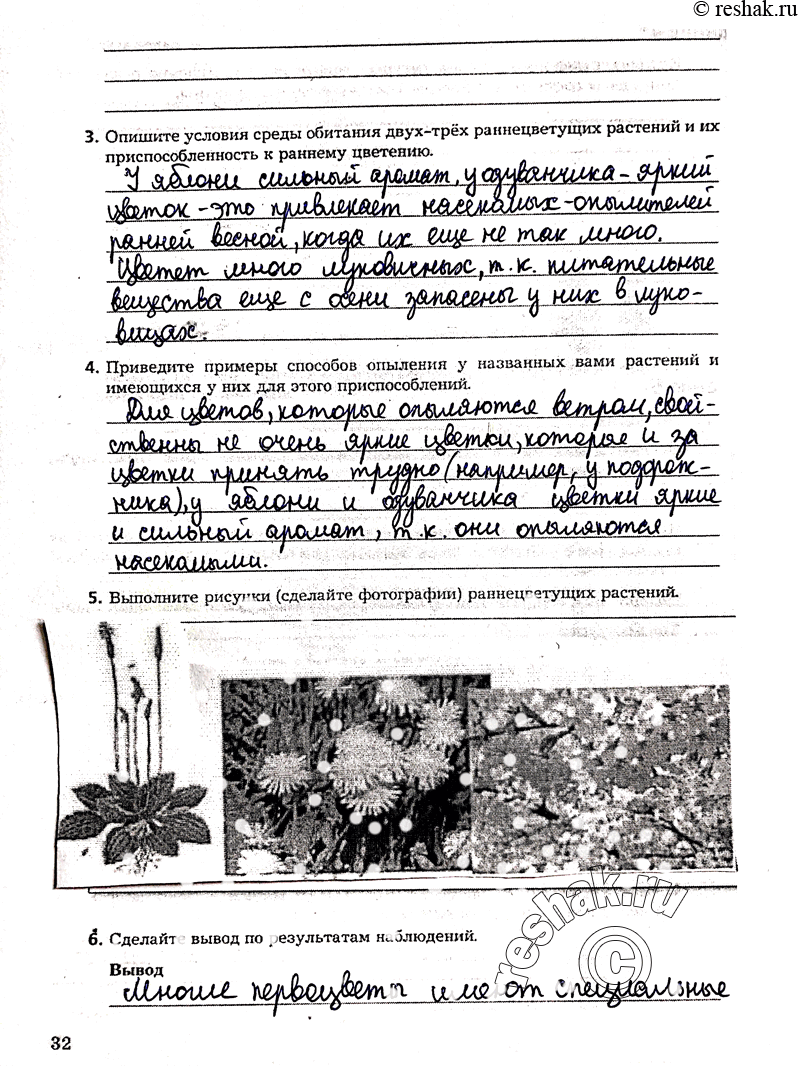 © reshak.ru
3. Опишите условия среды обитания двух-трёх раннецветущих растений и их
приспособленность к раннему цветению.
У яблони сильный аромат, у одуванчика - яркий
цветок - это привлекает насекомых-опылителей
ранней весной, когда их еще не так много.
Цветет много луковичных, т.к. питательные
вещества еще с осени запасены у них в луко-
вицах.
4. Приведите примеры способов опыления у названных вами растений и
имеющихся у них для этого приспособлений.
Для цветов, которые опыляются ветром, свой-
ственны не очень яркие цветки, которые и за
цветки принять трудно (например, у подорож-
ника), у яблони и одуванчика цветки яркие
и сильный аромат, т.к. они опыляются
насекомыми.
5. Выполните рисунки (сделайте фотографии) раннецветущих растений.
reshak.ru
©
6. Сделайте вывод по результатам наблюдений.
Вывод
Многие первоцветы имеют специальные
32